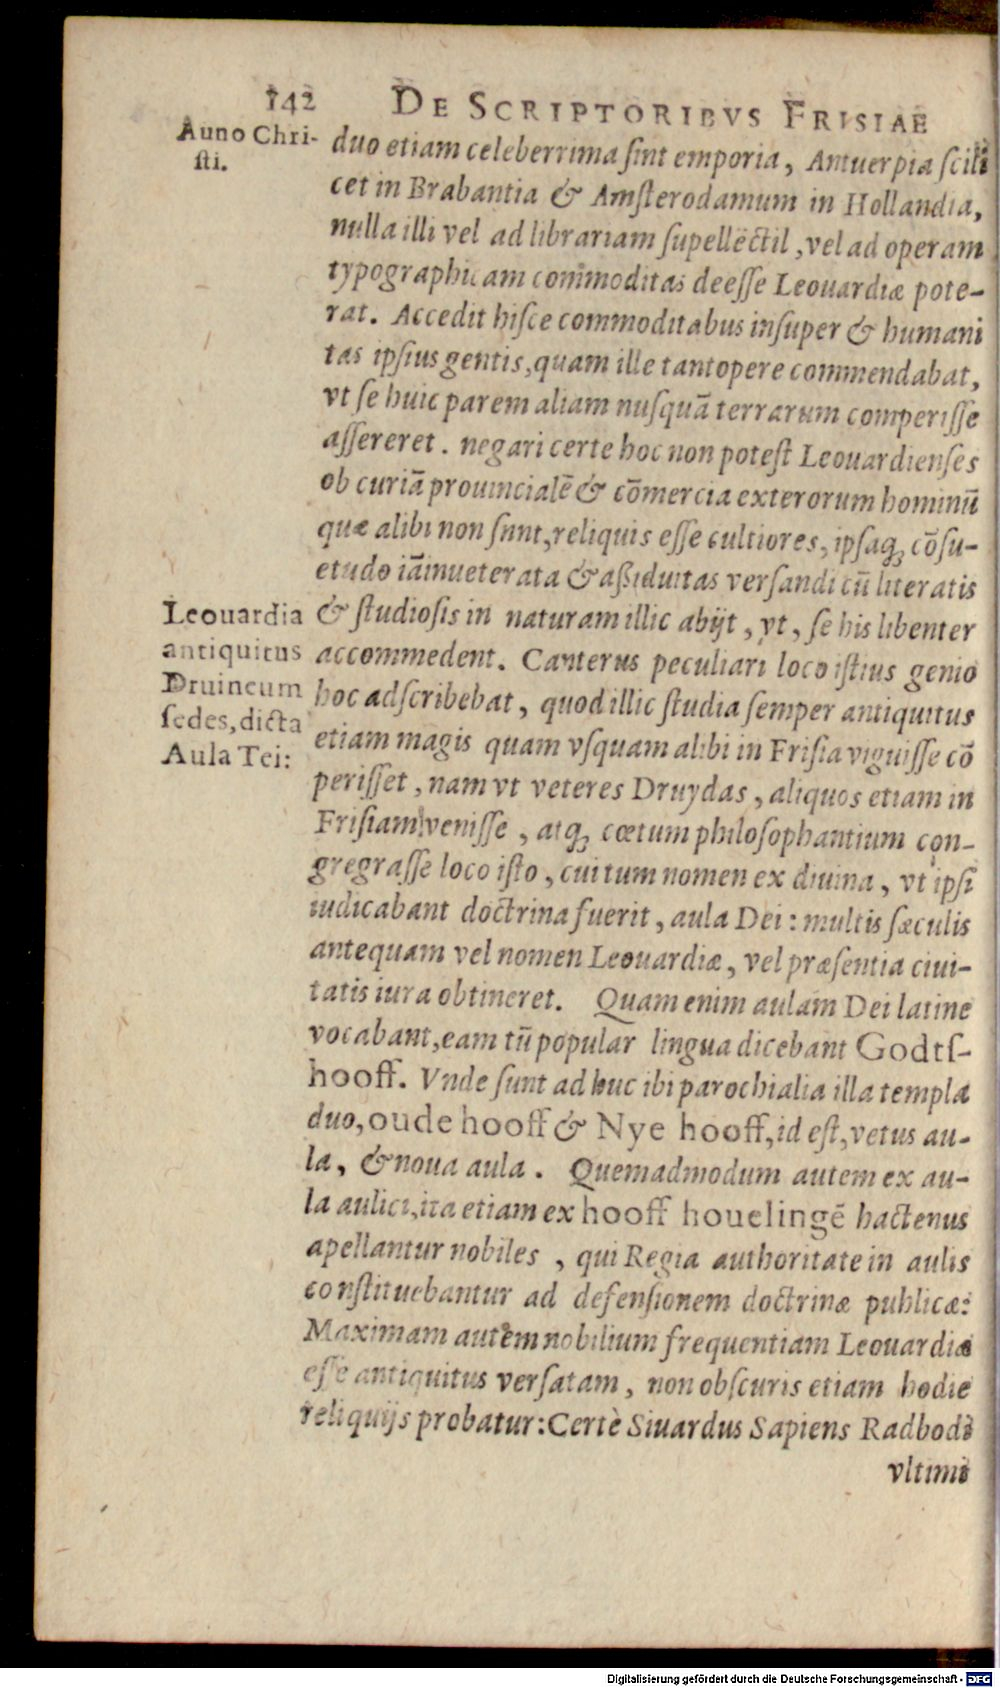 142 DE SCRIPTORIBVS FRISIAE
Auno Chri-
sti.
duo etiam celeberrima ſint emporia, Antuerpia ſcili
cet in Brabantia & Amſterodamum in Hollandia,
nulla illi vel ad librariam ſupellectil, vel ad operam
typographicam commoditas deeſſe Leouardiæ pote-
rat. Accedit hiſce commoditabus inſuper & humani
tas ipſius gentis, quam ille tantopere commendabat,
vt ſe huic parem aliam nuſquã terrarum comperiſſe
aſſereret. negari certe hoc non poteſt Leouardienſes
ob curiã prouincialẽ & cõmercia exterorum hominũ
quæ alibi non ſnnt, reliquis eſſe cultiores, ipſaq; cõſu-
etudo iãinueterata & aßiduitas verſandi cũ literatis
& ſtudioſis in naturam illic abijt, vt, ſe his libenter
accommedent. Canterus peculiari loco iſtius genio
hoc adſcribebat, quod illic ſtudia ſemper antiquitus
etiam magis quam vſquam alibi in Friſia viguiſſe cõ
periſſet, nam vt veteres Druydas, aliquos etiam in
Friſiam veniſſe, atq; cœtum philoſophantium con-
gregraſſe loco iſto, cui tum nomen ex diuina, vt ipſi
iudicabant doctrina fuerit, aula Dei: multis ſæculis
antequam vel nomen Leouardiæ, vel præſentia ciui-
tatis iura obtineret. Quam enim aulam Dei latine
vocabant, eam tũ popular lingua dicebant Godtſ-
hooff. Vnde ſunt ad huc ibi parochialia illa templa
duo, oude hooff & Nye hooff, id eſt, vetus au-
la, & noua aula. Quemadmodum autem ex au-
la aulici, ita etiam ex hooff houelingẽ hactenus
apellantur nobiles, qui Regia authoritate in aulis
conſtituebantur ad defenſionem doctrinæ publicæ:
Maximam autem nobilium frequentiam Leouardiæ
eſſe antiquitus verſatam, non obſcuris etiam hodie
reliquijs probatur: Certè Siuardus Sapiens Radbodi
vltimi
Leouardia
antiquitus
Druincum
ſedes, dicta
Aula Tei:
Digitalisierung gefördert durch die Deutsche Forschungsgemeinschaft - DFG